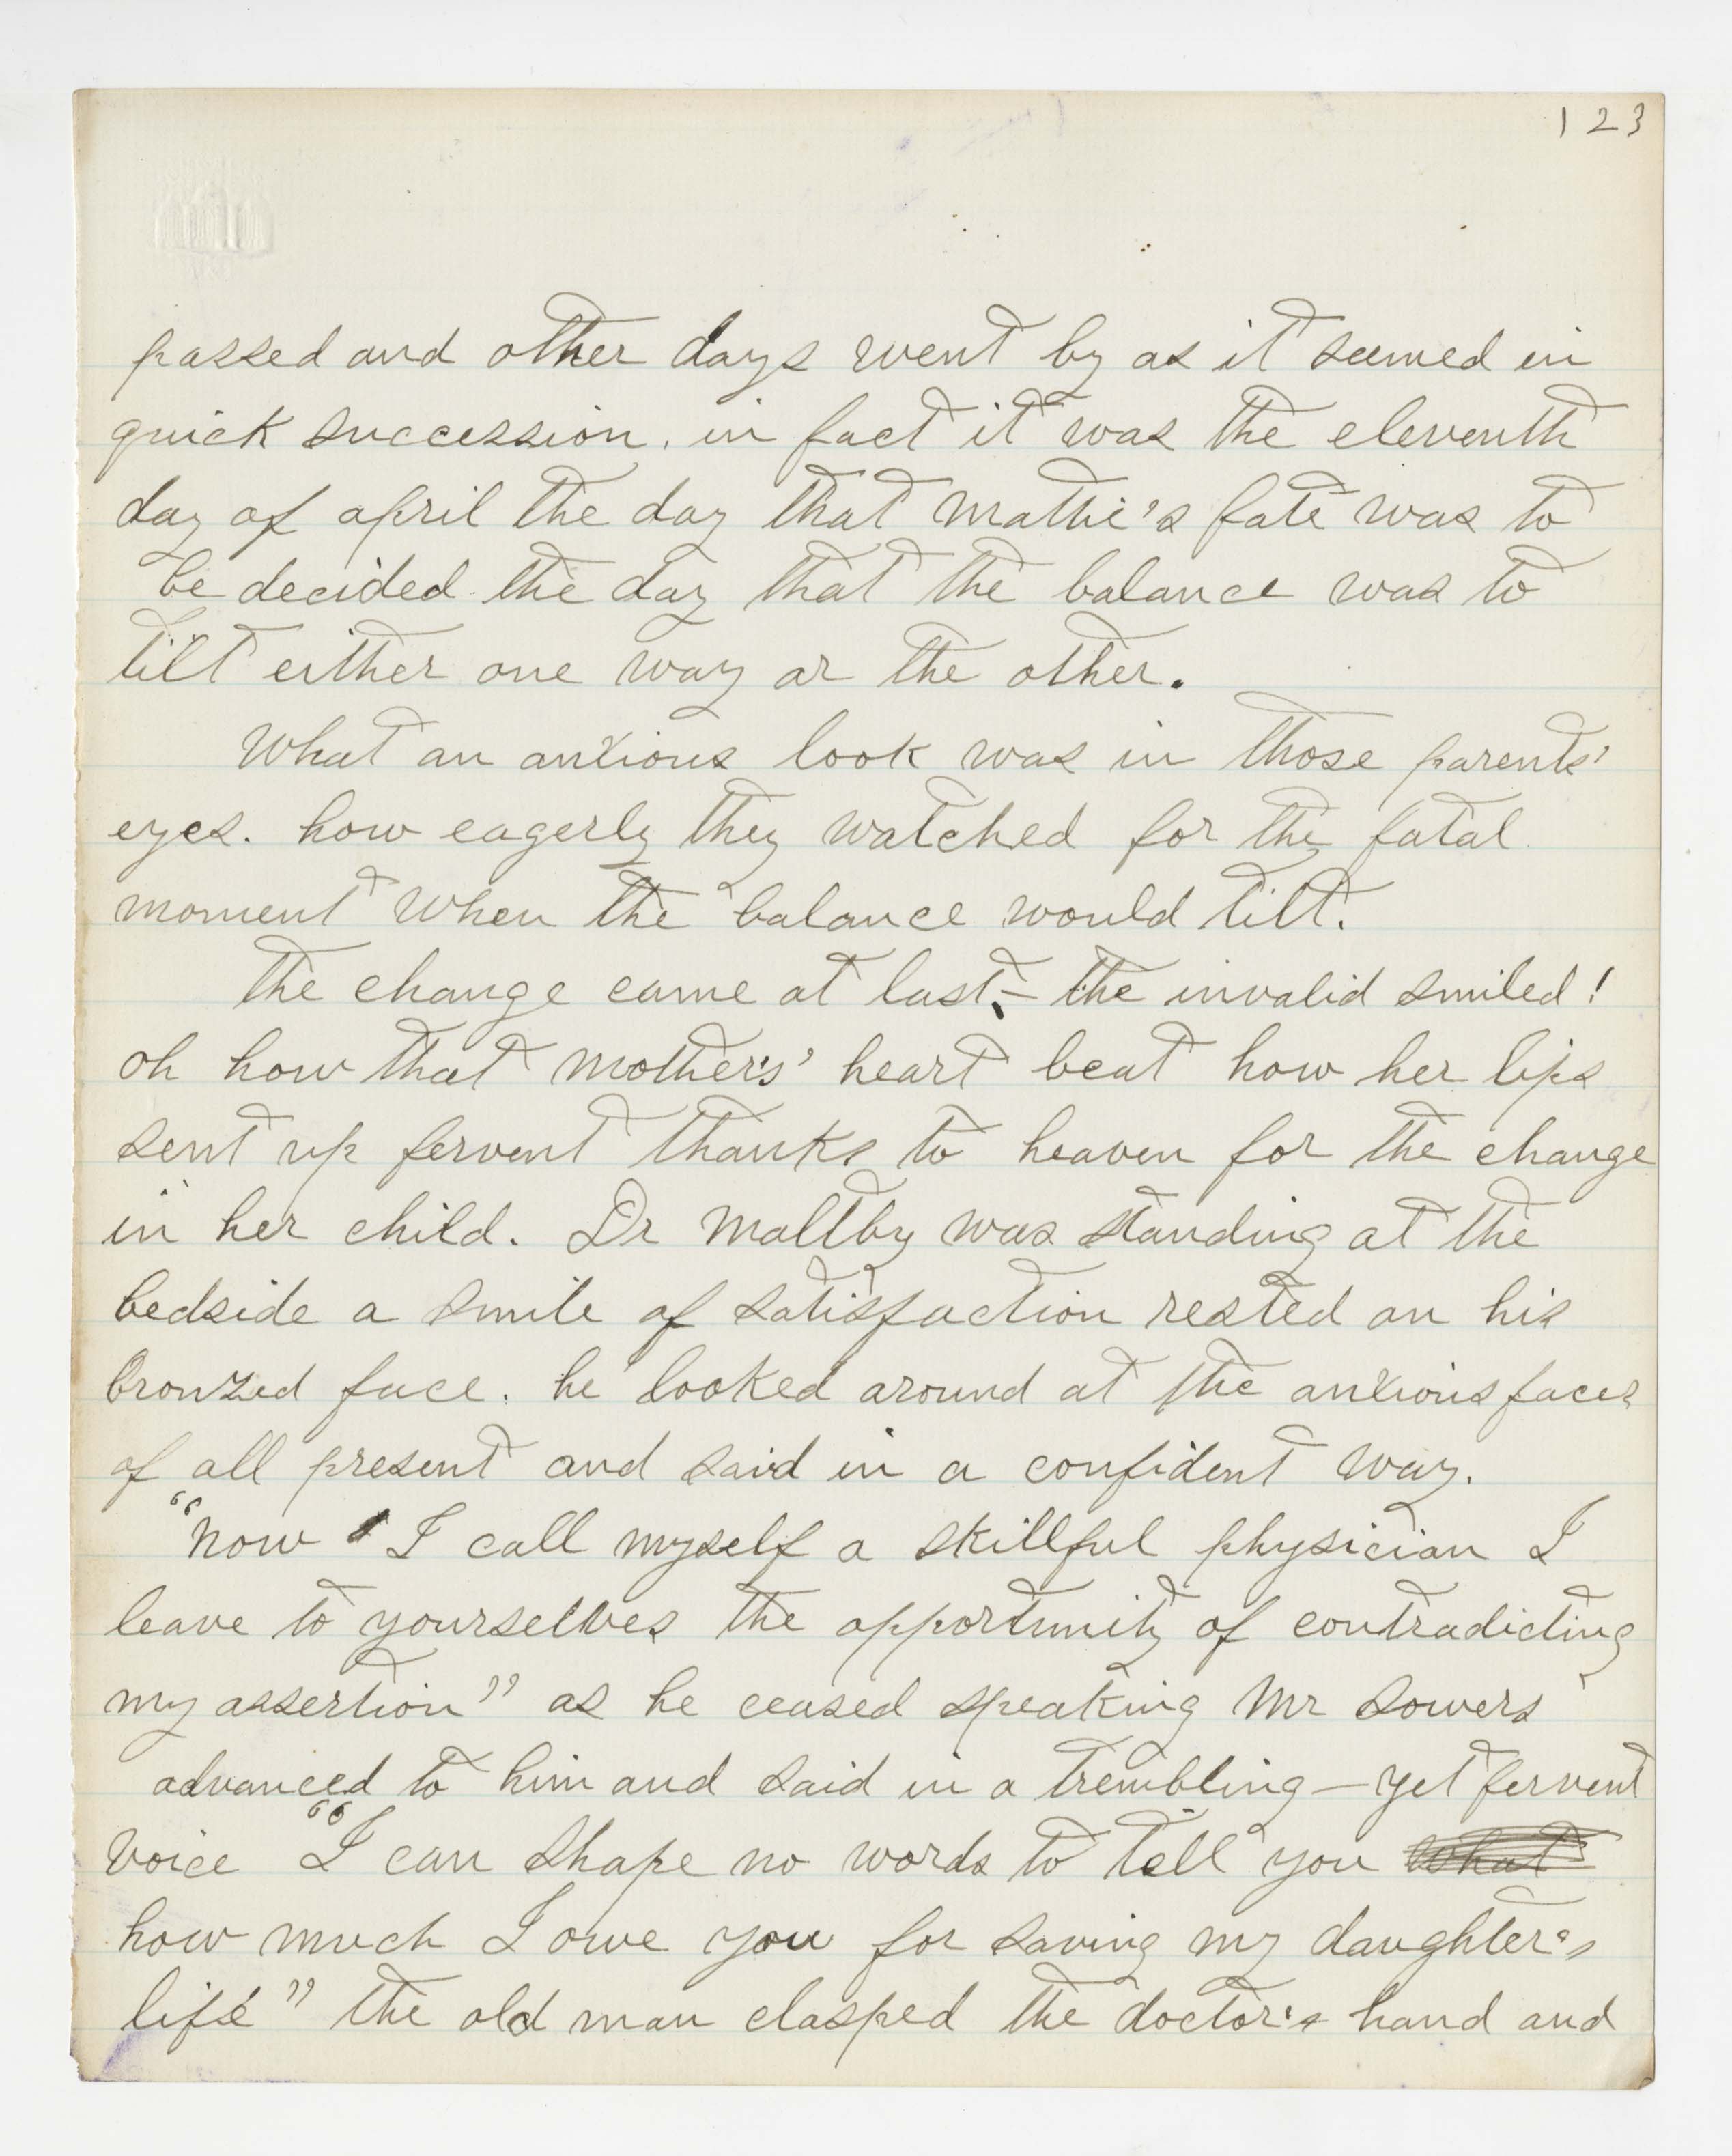 123
passed and other days went by as it seemed in
quick succession. in fact it was the eleventh
day of april the day that Mattie's fate was to
be decided the day that the balance was to
tilt either one way or the other.
What an anxious look was in those parents'
eyes. how eagerly they watched for the fatal
moment when the balance would tilt.
The change came at last,– the invalid smiled!
oh how that mother's' heart beat how her lips
sent up fervent thanks to heaven for the change
in her child. Dr Maltby was standing at the
bedside a smile of satisfaction rested on his
bronzed face. he looked around at the anxious faces
of all present and said in a confident way.
"Now I call myself a skillful physician I
leave to yourselves the opportunity of contradicting
my assertion" as he ceased speaking Mr Sowers
advanced to him and said in a trembling – yet fervent
voice "I can shape no words to tell you what
how much I owe you for saving my daughter's
life" the old man clasped the doctor's hand and